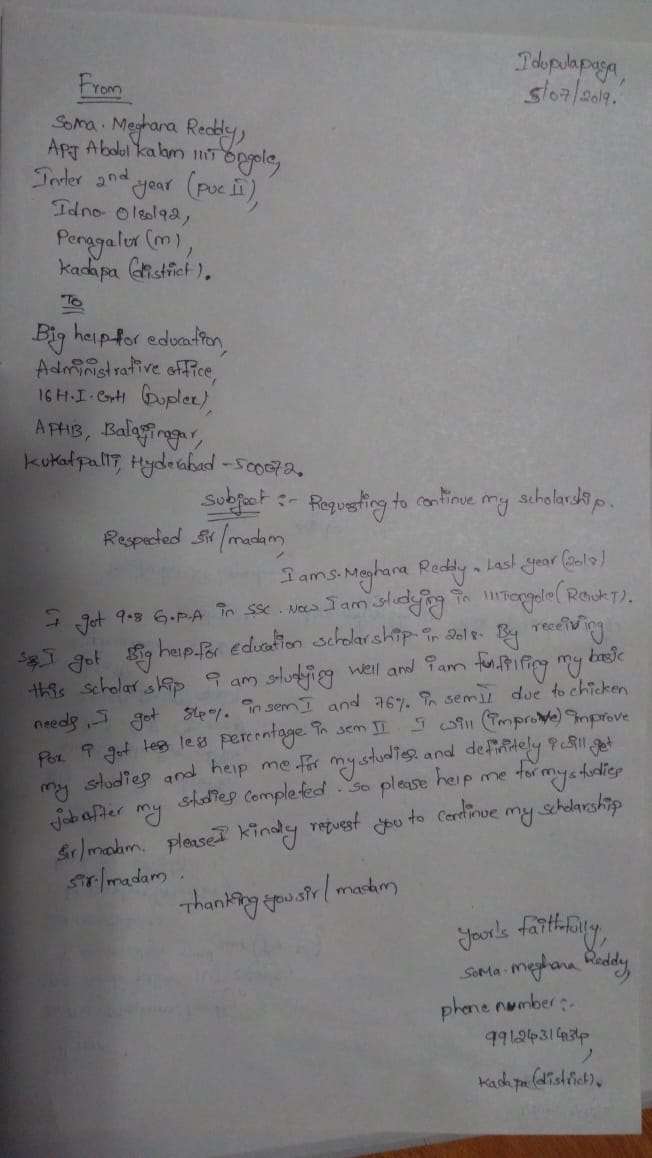 Idupulapaya,
5/07/2019.
From
Soma. Meghana Reddy,
APJ Abdul kalam IIIT Ongole,
Inter 2nd year (PUC II),
Idno- O180192,
Penagalur (m),
Kadapa (district).
To
Big help for education,
Administrative office,
16 H.I.GH (Duplex),
APHB, Balajinagar,
Kukatpalli, Hyderabad - 500072.
Subject :- Requesting to continue my scholarship.
Respected sir/madam,
I am S. Meghana Reddy. Last year (2018)
I got 9.8 G.P.A in SSC. Now I am studying in IIIT ongole (RGUKT).
I got Big help for education scholarship in 2018. By receiving
this scholarship i am studying well and i am fulfilling my basic
needs, I got 84% in sem I and 76% in sem II due to chicken
pox i got less percentage in sem II. I will (improve) improve
my studies and help me for my studies and definitely i will get
job after my studies completed. So please help me for my studies
sir/madam. please I kindly request you to continue my scholarship
sir/madam.
Thanking you sir/madam
your's faithfully,
Soma. meghana Reddy,
phone number :-
9912431434,
Kadapa (district).